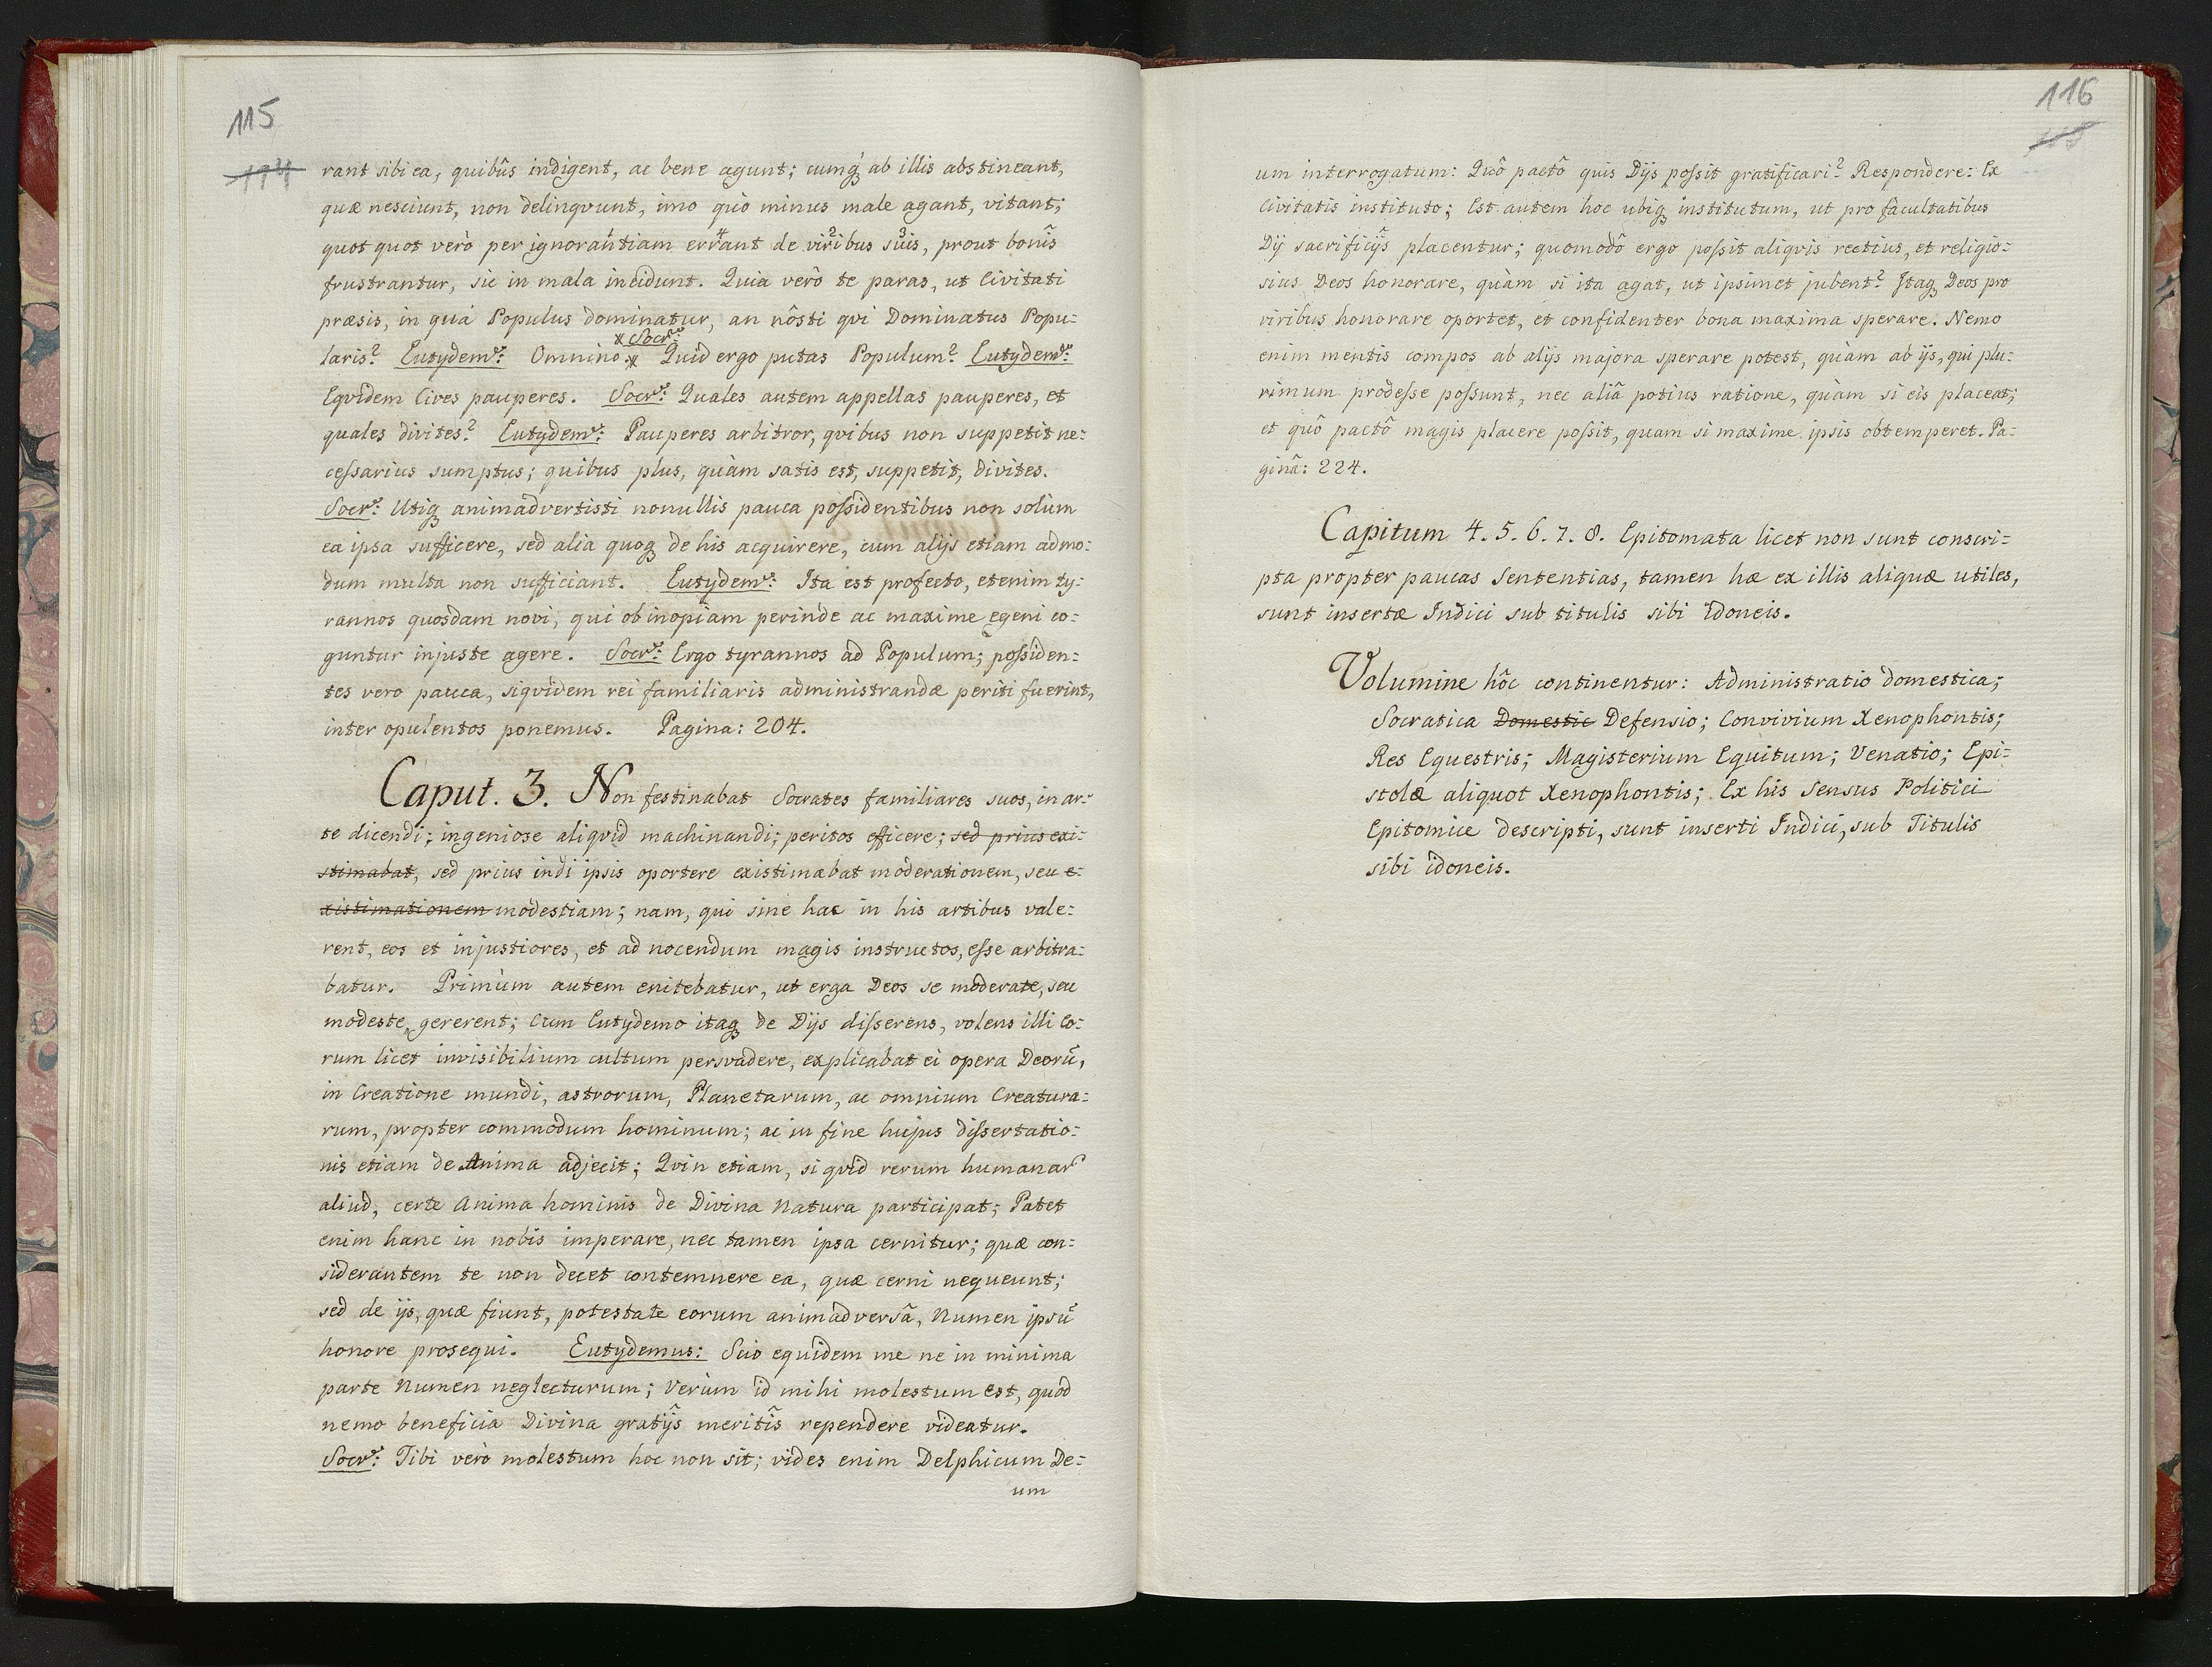 115
rant sibi ea, quibûs indigent, ac bene agunt; cumq́ꝫ ab illis abstineant,
quæ nesciunt, non delinqvunt, imo quò minus male agant, vitant;
quot quot verò per ignorantiam errant de viribus suis, prout bonîs
frustrantur, sic in mala incidunt. Quia verò te paras, ut Civitati
præsis, in quâ Populus dominatur, an nôsti qvi Dominatus Popu:
x Socr:
laris? Eutydem: Omnino. x Quid ergo putas Populum? Eutydem:
Eqvidem Cives pauperes. Socr: Quales autem appellas pauperes, et
quales divites? Eutydem: Pauperes arbitror, qvibus non suppetit ne:
cessarius sumptus; quibus plus, quàm satis est, suppetit, Divites.
Socr: Utiqꝫ animadvertisti nonullis pauca possidentibus non solum
ea ipsa sufficere, sed alia quoqꝫ de his acquirere, cum alijs etiam admo:
dum multa non sufficiant. Eutydem: Ita est profecto, etenim ty:
rannos quosdam novi, qui ob inopiam perinde ac maxime egeni co:
guntur injuste agere. Socr: Ergo tyrannos ad Populum; possiden:
tes vero pauca, siqvidem rei familiaris administrandæ periti fuerint,
inter opulentos ponemus. Pagina: 204.
Caput. 3. Non festinabat Socrates familiares suos, in ar:
te dicendi; ingeniose aliqvid machinandi; peritos efficere; sed prius exi:
stimabat, sed prius indi ipsis oportere existimabat moderationem, seu e:
xistimationem modestiam; nam, qui sine hac in his artibus vale:
rent, eos et injustiores, et ad nocendum magis instructos, esse arbitra:
batur. Primùm autem enitebatur, ut erga Deos se moderate, seu
modeste, gererent; cum Eutydemo itaqꝫ de Dijs disserens, volens illi Eo:
rum licet invisibilium cultum persvadere, explicabat ei opera Deorũ,
in Creatione mundi, astrorum, Planetarum, ac omnium Creatura:
rum, propter commodum hominum; ac in fine hujus dissertatio:
nis etiam de Anima adjecit; Qvin etiam, si qvid rerum humanar
aliud, certe Anima hominis de Divina Natura participat; Patet
enim hanc in nobis imperare, nec tamen ipsa cernitur; quæ con:
siderantem te non decet contemnere ea, quæ cerni nequeunt;
sed de ijs, quæ fiunt, potestate eorum animadversâ, Numen ipsũ
honore prosequi. Eutydemus: Scio equidem me ne in minima
parte Numen neglecturum; Verùm id mihi molestum est, quod
nemo beneficia Divina gratijs meritîs rependere videatur.
Socr: Tibi verò molestum hoc non sit; vides enim Delphicum De:
um
116
um interrogatum: Quô pactô quis Dijs possit gratificari? Respondere: Ex
Civitatis instituto; Est autem hoc ubiqꝫ institutum, ut pro facultatibus
Dij sacrificijs placentur; quomodô ergo possit aliqvis rectius, et religio:
sius Deos honorare, quàm si ita agat, ut ipsimet jubent? Itaqꝫ Deos pro
viribus honorare oportet, et confidenter bona maxima sperare. Nemo
enim mentis compos ab alijs majora sperare potest, quàm ab ijs, qui plu:
rimum prodesse possunt, nec aliâ potius ratione, quàm si eis placeat;
et quô pactô magis placere possit, quam si maxime ipsis obtemperet. Pa:
ginâ: 224.
Capitum 4. 5. 6. 7. 8. Epitomata licet non sunt conscri:
pta propter paucas Sententias, tamen hæ ex illis aliquæ utiles,
sunt insertæ Indici sub titulis sibi idoneis.
Volumine hôc continentur: Administratio domestica;
Socratica Domestic Defensio; Convivium Xenophontis;
Res Equestris; Magisterium Equitum; Venatio; Epi:
stolæ aliquot Xenophontis; Ex his Sensus Politici
Epitomice descripti, sunt inserti Indici, sub Titulis
sibi idoneis.